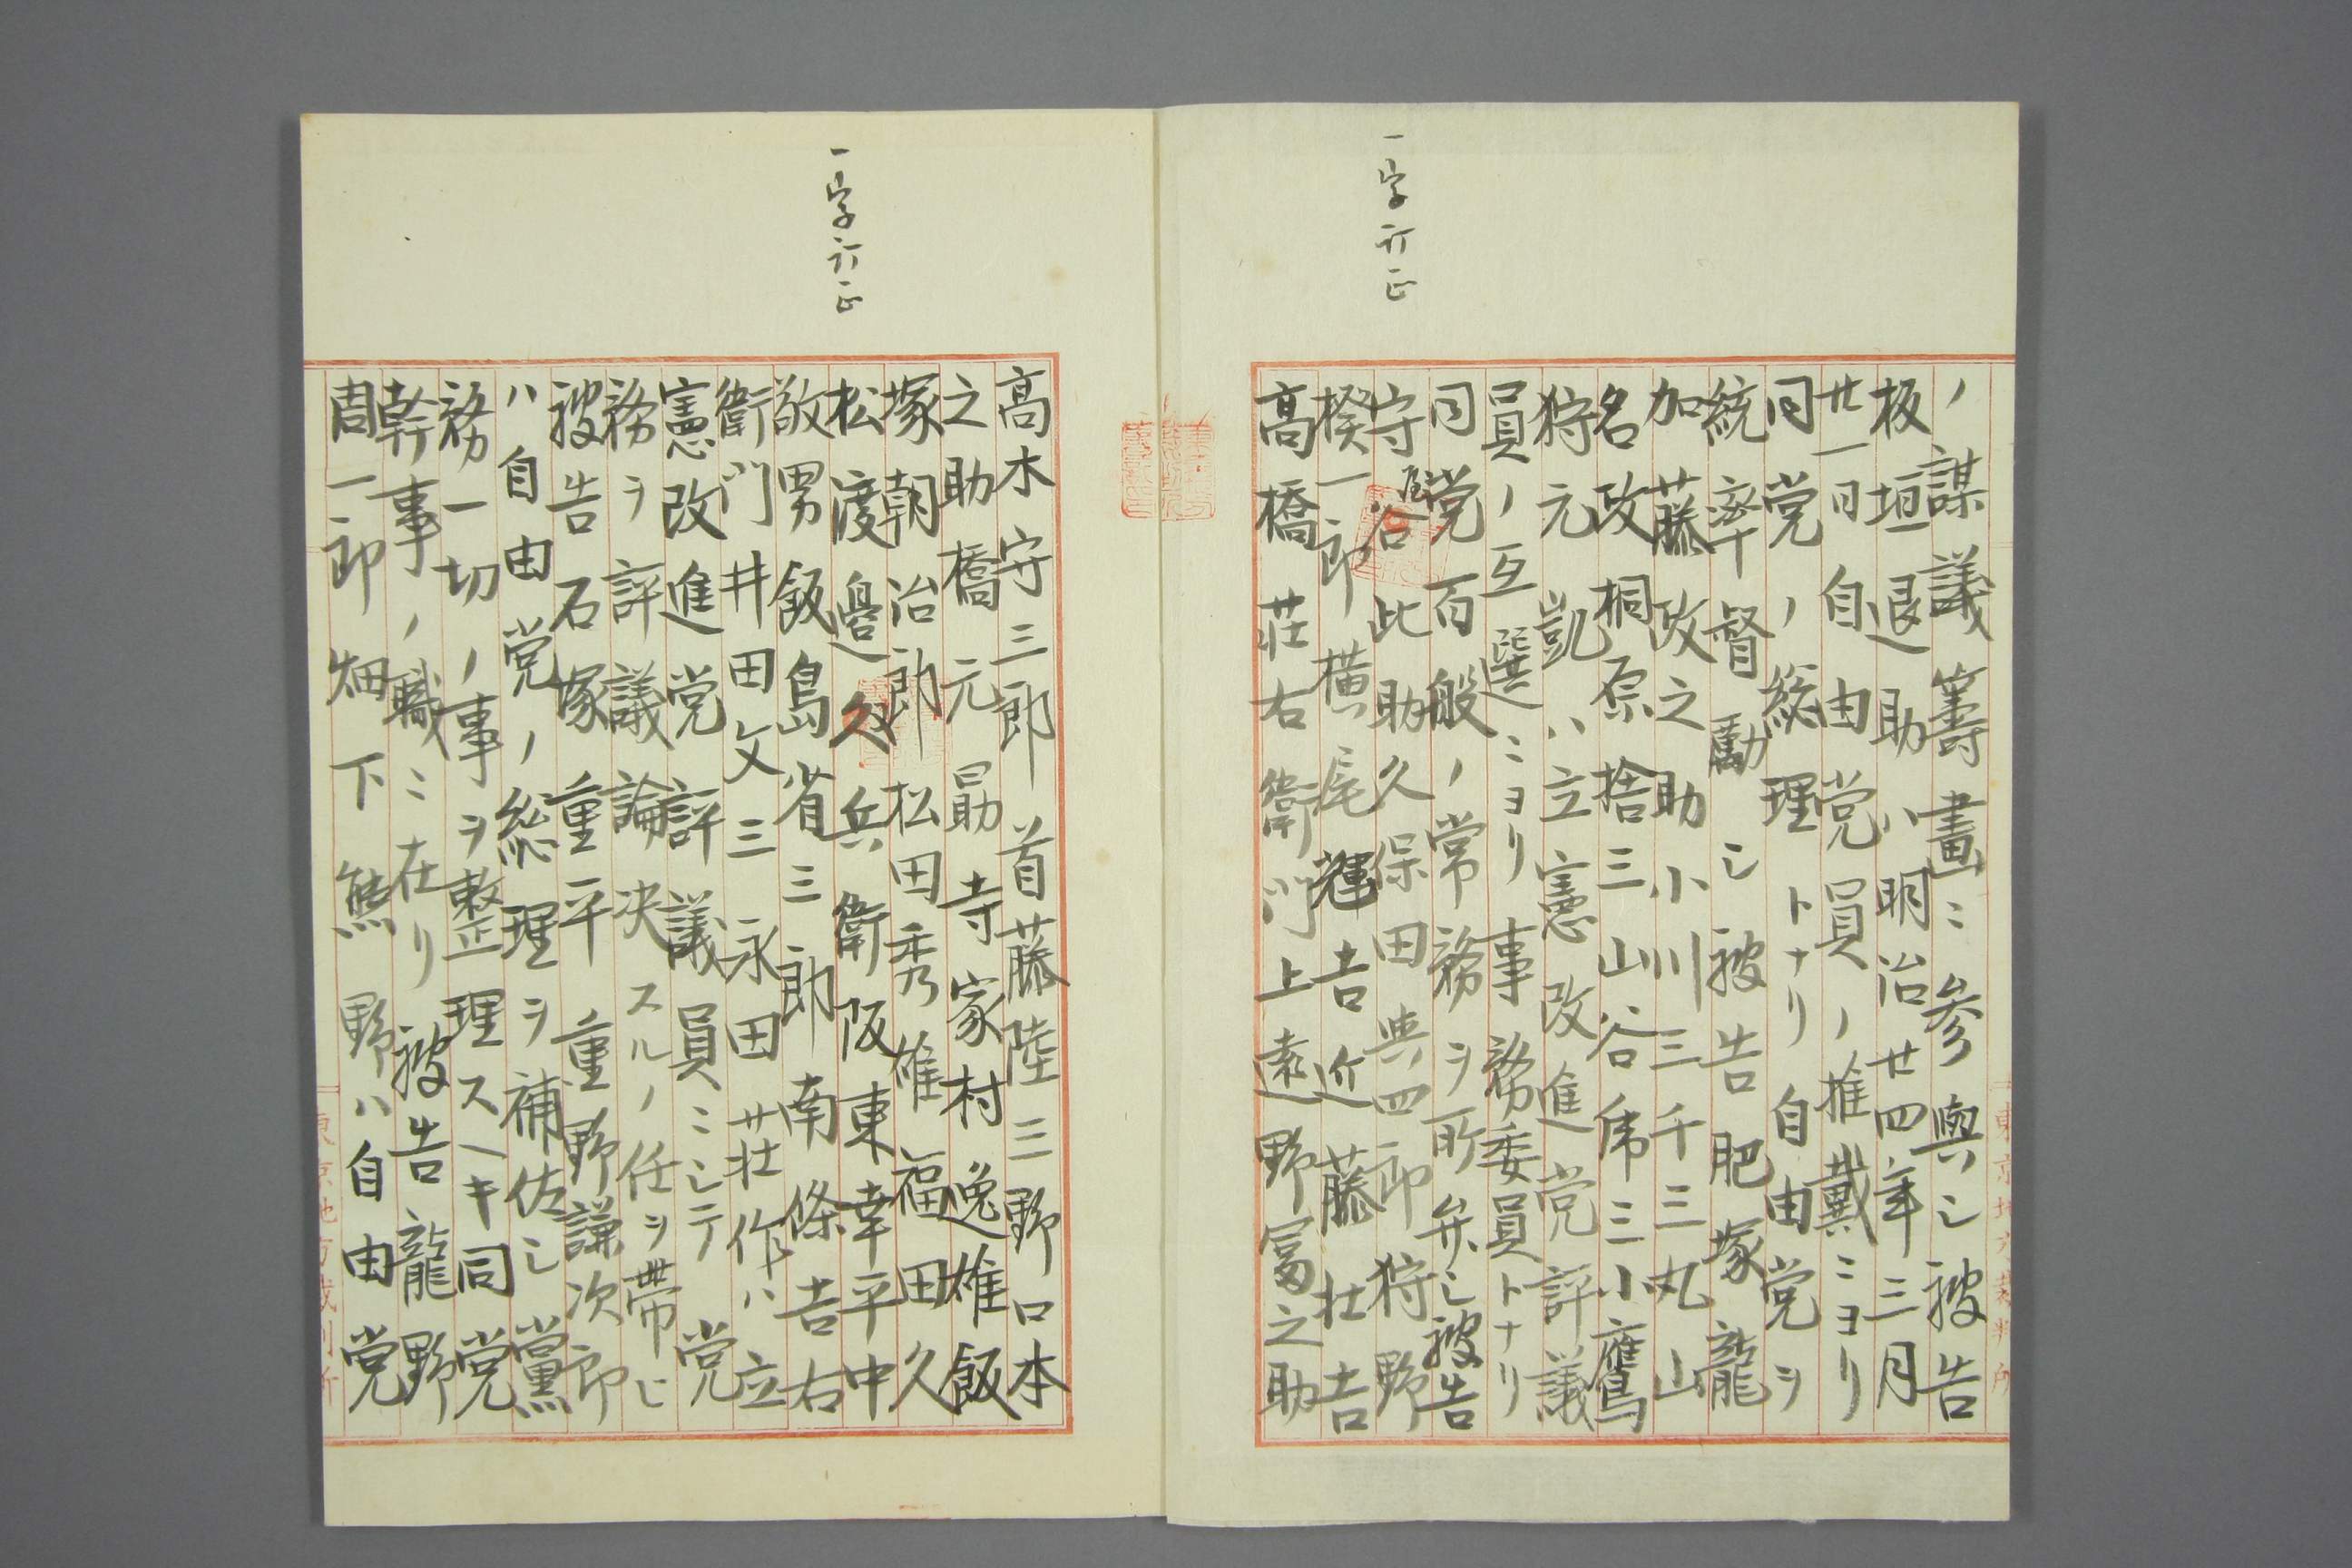 一字訂正
ノ謀議籌畫ニ参與シ被告
板垣退助ハ明治廿四年三月
廿一日自由党員ノ推戴ニヨリ
同党ノ総理トナリ自由党ヲ
統率督勵シ被告肥塚龍
加藤政之助小川三千三丸山
名政桐原捨三山谷乕三小鷹
狩元凱ハ立憲改進党評議
員ノ互選ニヨリ事務委員トナリ
同党百般ノ常務ヲ所弁シ被告
守屋此助久保田與四郎狩野
揆一郎横尾輝吉近藤壮吉
高橋莊右衛門上遠野富之助
一字訂正
高木守三郎首藤陸三野口本
之助橋元勗寺家村逸雄飯
塚朝治郎松田秀雄福田久
松渡邉久兵衛阪東幸平中
敬男飯島省三郎南條吉右
衛門井田文三永田荘作ハ立
憲改進党評議員ニシテ党
務ヲ評議論決スルノ任ヲ帶ヒ
被告石塚重平重野謙次郎
ハ自由党ノ総理ヲ補佐シ黨
務一切ノ事ヲ整理スヘキ同党
幹事ノ職ニ在リ被告龍野
周一郎畑下熊野ハ自由党
東京地方裁判所